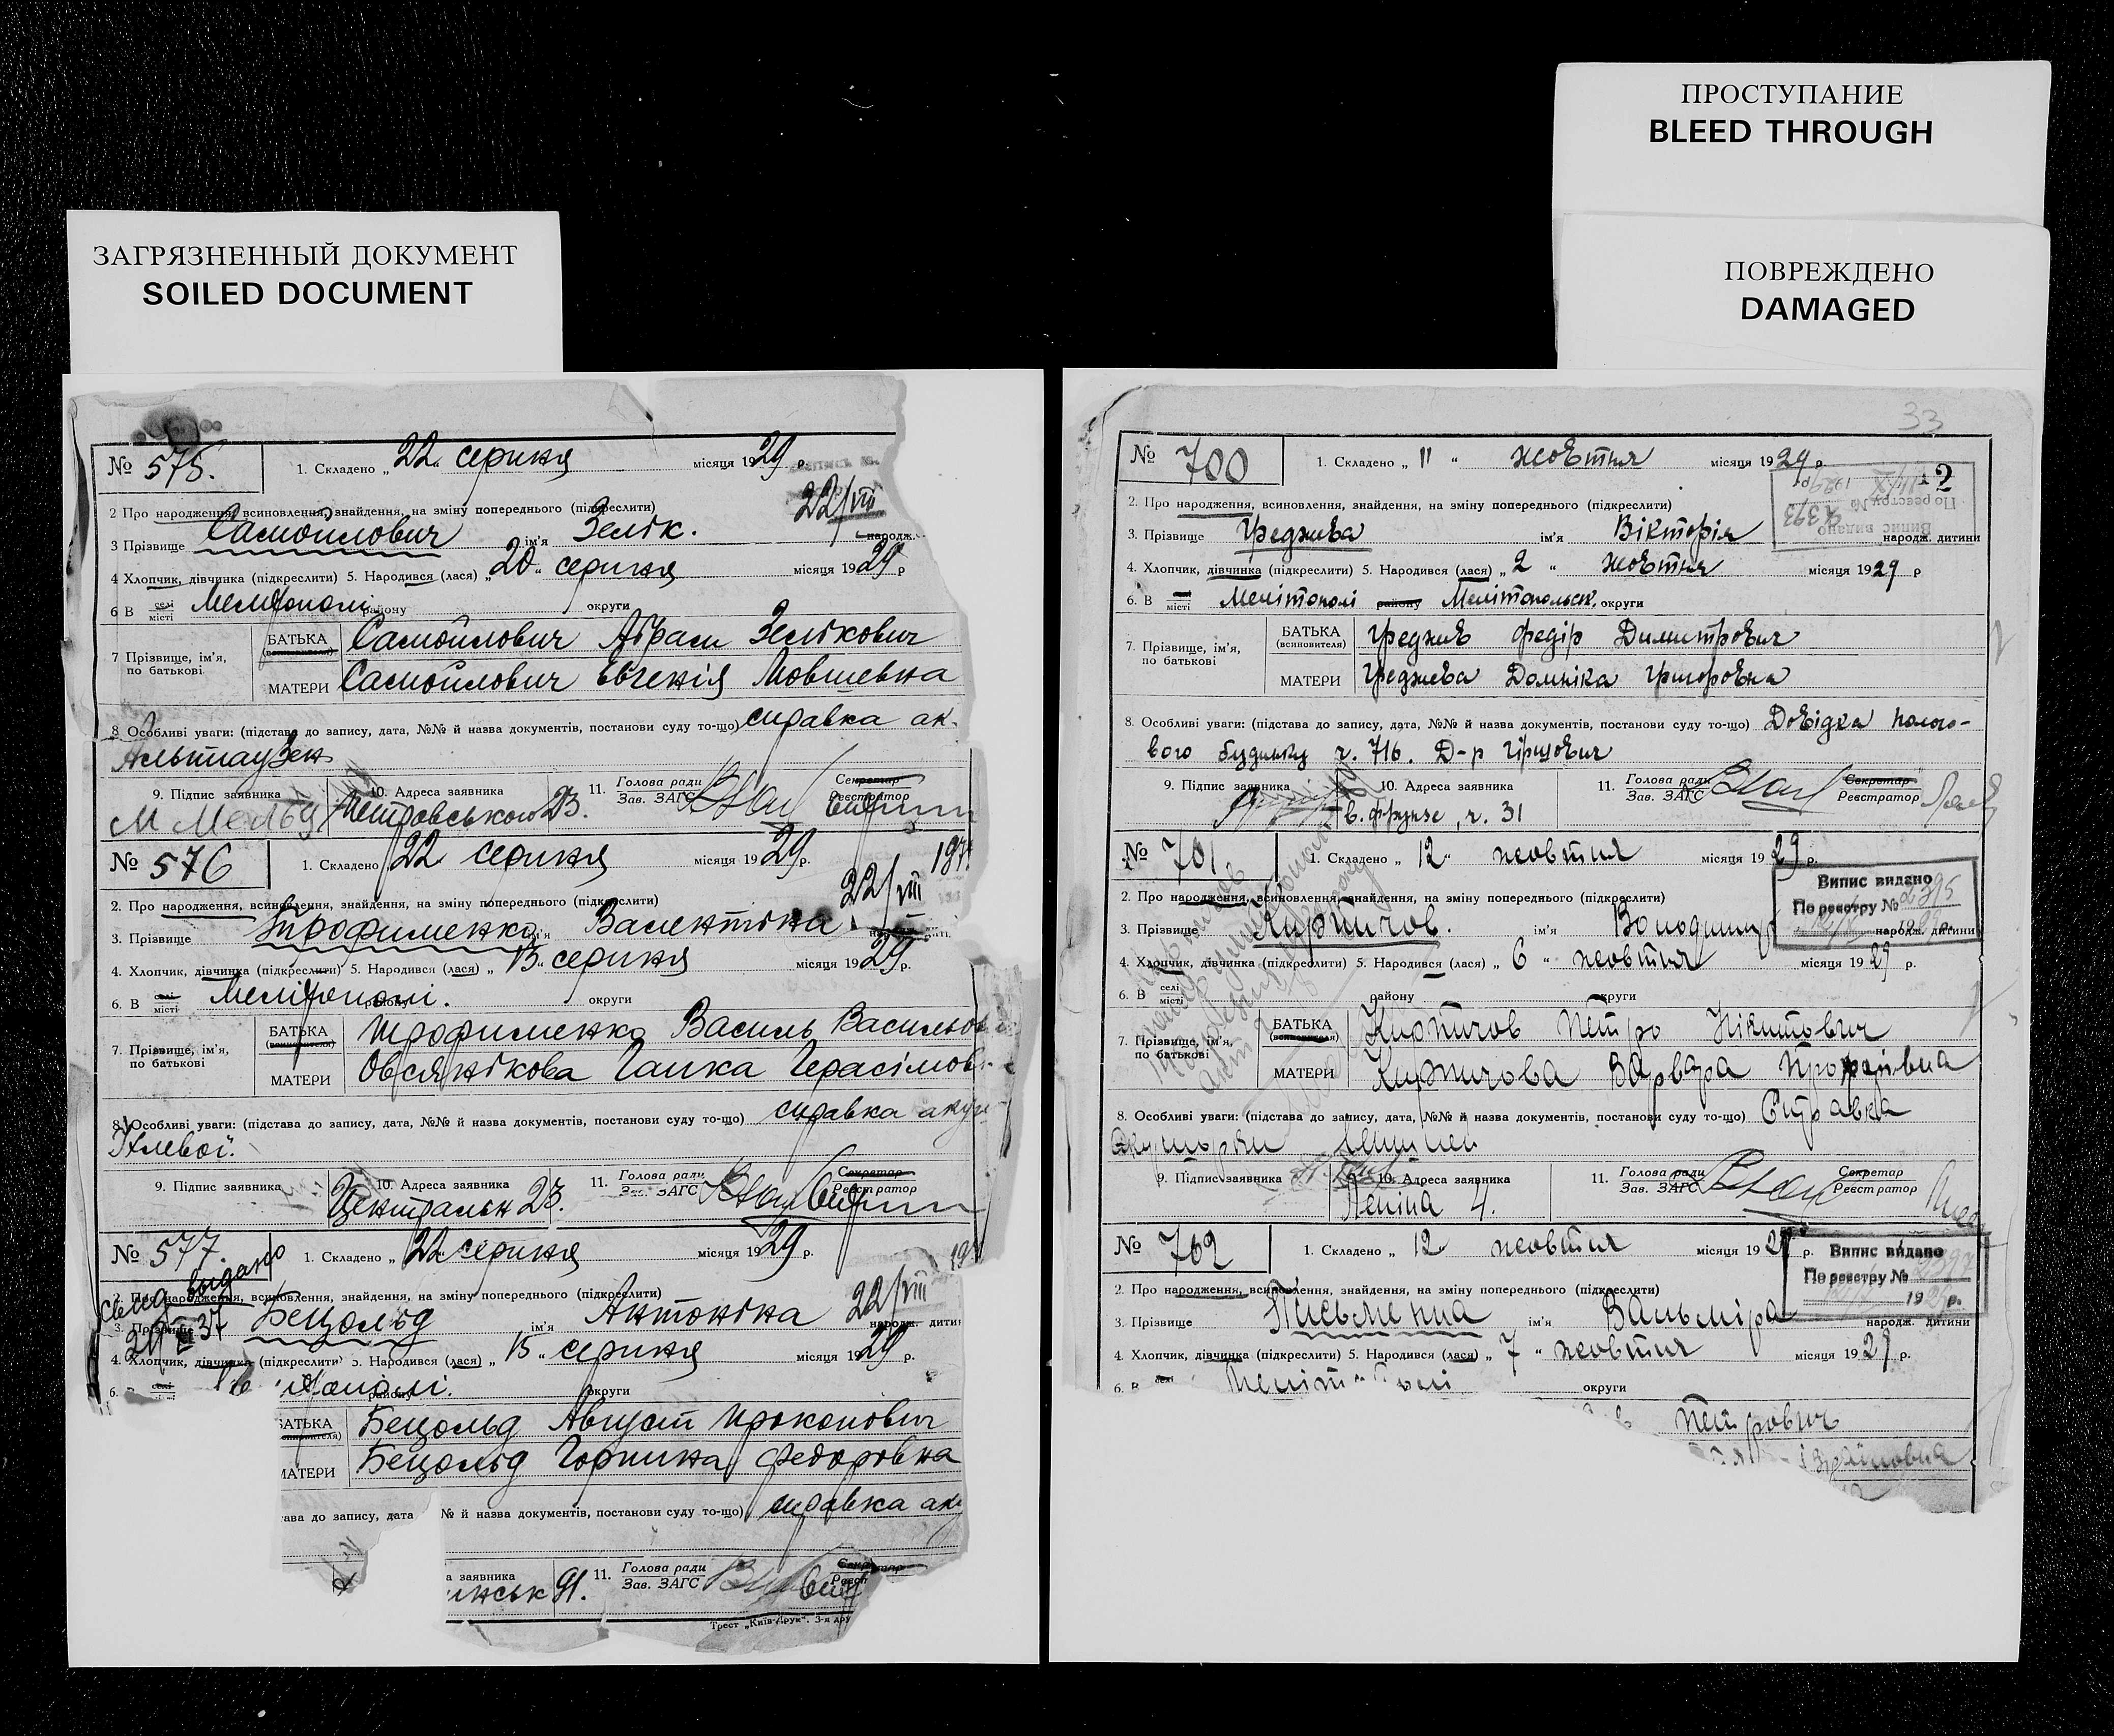 ЗАГРЯЗНЕННЫЙ ДОКУМЕНТ
SOILED DOCUMENT
ПРОСТУПАНИЕ
BLEED THROUGH
ПОВРЕЖДЕНО
DAMAGED
№ 575. 1. Складено „ 22 “ серпня місяця 1929 р.
22/VIII
2 Про народження, всиновлення, знайдення, на зміну попереднього (підкреслити)
3 Прізвище Самойлович ім'я Зелік. народж.
4 Хлопчик, дівчинка (підкреслити) 5. Народився (лася) „ 20 “ серпня місяця 1929 р
6 В селі місті Мелітополі району округи
7 Прізвище, ім'я, по батькові
БАТЬКА (всиновителя) Самойлович Абрам Зелікович
МАТЕРИ Самойлович Евгенія Мовшевна
8 Особливі уваги: (підстава до запису, дата, №№ й назва документів, постанови суду то-що) справка ак.
Альтгаузен
9. Підпис заявника 10. Адреса заявника 11. Голова ради Зав. ЗАГС Секретар Реєстратор
Петровського 23.
№ 576 1. Складено 22 серпня місяця 1929 р.
22/VIII
2. Про народження, всиновлення, знайдення, на зміну попереднього (підкреслити)
3. Прізвище Трофименко ім'я Валентіна
4. Хлопчик, дівчинка (підкреслити) 5. Народився (лася) „ 13 “ серпня місяця 1929 р.
6. В селі місті Мелітополі. району округи
7. Прізвище, ім'я, по батькові
БАТЬКА (всиновителя) Трофименко Василь Васильов
МАТЕРИ Овсянікова Ганка Герасімов
8 Особливі уваги: (підстава до запису, дата, №№ й назва документів, постанови суду то-що) справка акуш
9. Підпис заявника 10. Адреса заявника 11. Голова ради Зав. ЗАГС Секретар Реєстратор
Центральн 23.
№ 577. 1. Складено „ 22 серпня місяця 1929 р.
видано
22/VIII
2. Про народження, всиновлення, знайдення, на зміну попереднього (підкреслити)
3. Прізвище Бецольд ім'я Антоніна народж. дити
37
4. Хлопчик, дівчинка (підкреслити) 5. Народився (лася) „ 15 “ серпня місяця 1929 р.
6. селі тополі. району округи
БАТЬКА Бецольд Август Прокопович
МАТЕРИ Бецольд Горпина Федоровна
ава до запису, дата № й назва документів, постанови суду то-що) справка аку
а заявника 11. Голова ради Зав. ЗАГС
инськ 91.
Трест „Київ-Друк“. 3-я дру
33
№ 700 1. Складено „ 11 “ жовтня місяця 1929 р.
2
Випис видано
По реєстру № 2393
2. Про народження, всиновлення, знайдення, на зміну попереднього (підкреслити)
3. Прізвище Греджева ім'я Вікторія народж. дитини
4. Хлопчик, дівчинка (підкреслити) 5. Народився (лася) „ 2 “ жовтня місяця 1929 р
6. В місті Мелітополі району Мелітопольск. округи
7. Прізвище, ім'я, по батькові
БАТЬКА (всиновителя) Греджев Федір Димитрович
МАТЕРИ Греджева Домніка Григоровна
8. Особливі уваги: (підстава до запису, дата, №№ й назва документів, постанови суду то-що) Довідка полого-
вого будинку ч. 716. Д-р Гіршович
9. Підпис заявника 10. Адреса заявника 11. Голова ради Зав. ЗАГС Секретар Реєстратор
в. Фрунзе, ч. 31
№ 701 1. Складено „ 12 “ жовтня місяця 1929 р.
Випис видано
По реєстру № 2395
2. Про народження, всиновлення, знайдення, на зміну попереднього (підкреслити)
3. Прізвище Кирпичов. ім'я Володимир народж. дитини
4. Хлопчик, дівчинка (підкреслити) 5. Народився (лася) „ 6 “ жовтня місяця 1929 р.
6. В селі місті району округи
7. Прізвище, ім'я, по батькові
БАТЬКА (всиновителя) Кирпичов Петро Нікитович
МАТЕРИ Кирпичова Варвара
8. Особливі уваги: (підстава до запису, дата, №№ й назва документів, постанови суду то-що) Справка
9. Підпис заявника 10. Адреса заявника 11. Голова ради Зав. ЗАГС Секретар Реєстратор
Леніна 4.
№ 702 1. Складено „ 12 жовтня місяця 1929 р.
Випис видано
По реєстру № 2397
19 р.
2. Про народження, всиновлення, знайдення, на зміну попереднього (підкреслити)
3. Прізвище Письменна ім'я Вальміра народж. дитини
4. Хлопчик, дівчинка (підкреслити) 5. Народився (лася) „ 7 “ жовтня місяця 1929 р.
6. В округи
Петрович